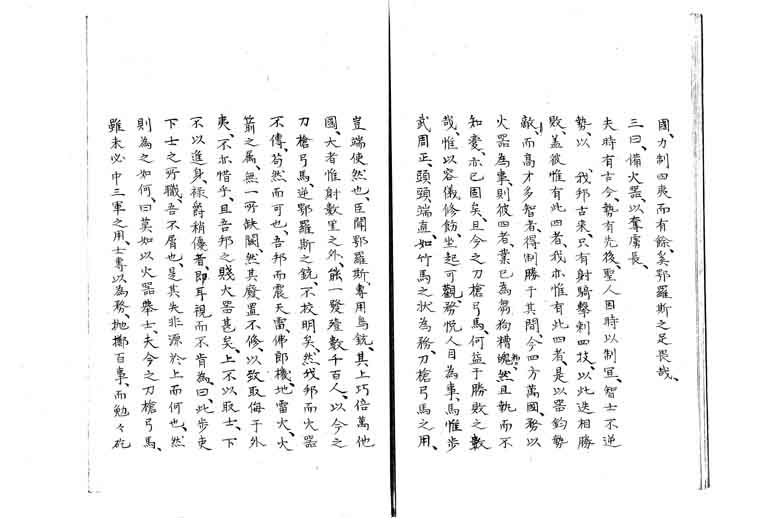 國、力制四夷而有餘、奚鄂羅斯之足畏哉、
三曰、備火器、以奪虜長、
夫時有古今、勢有先後、聖人因時以制宜、智士不逆
勢、以我邦古來、只有射騎擊刺四技、以此迭相勝
敗、蓋彼惟有此四者、我亦惟有此四者、是以器鈞勢
敵、而高才多智者、得制勝于其間、今四方萬國、務以
火器為事、則彼四者、業已為芻狗糟魄、然且執而不
知變、亦已固矣、且今之刀槍弓馬、何益于勝敗之數
哉、惟以容儀修飭、坐起可觀、務悅人目為事、馬惟步
武周正、頭頭端直、如竹馬之狀為務、刀槍弓馬之用、
豈端使然也、臣聞鄂羅斯、專用鳥銃、其上巧倍萬他
國、大者惟射數里之外、能一發殪數千百人、以今之
刀槍弓馬、逆鄂羅斯之銃、不校明矣、然我邦而火器
不傳、苟然而可也、吾邦而震天雷、佛郎機、地雷火、火
箭之屬、無一所缺闕、然其廢置不修、以致取侮于外
夷、不亦惜乎、且吾邦之賤火器甚矣、上不以取士、下
不以進身、祿爵稍優者、即耳視而不肯為、曰、此步吏
下士之所職、吾不屑也、是其失非源於上而何也、然
則為之如何、曰莫如以火器舉士、夫今之刀槍弓馬、
雖未必中三軍之用、士專以為務、拋擲百事、而勉々矻